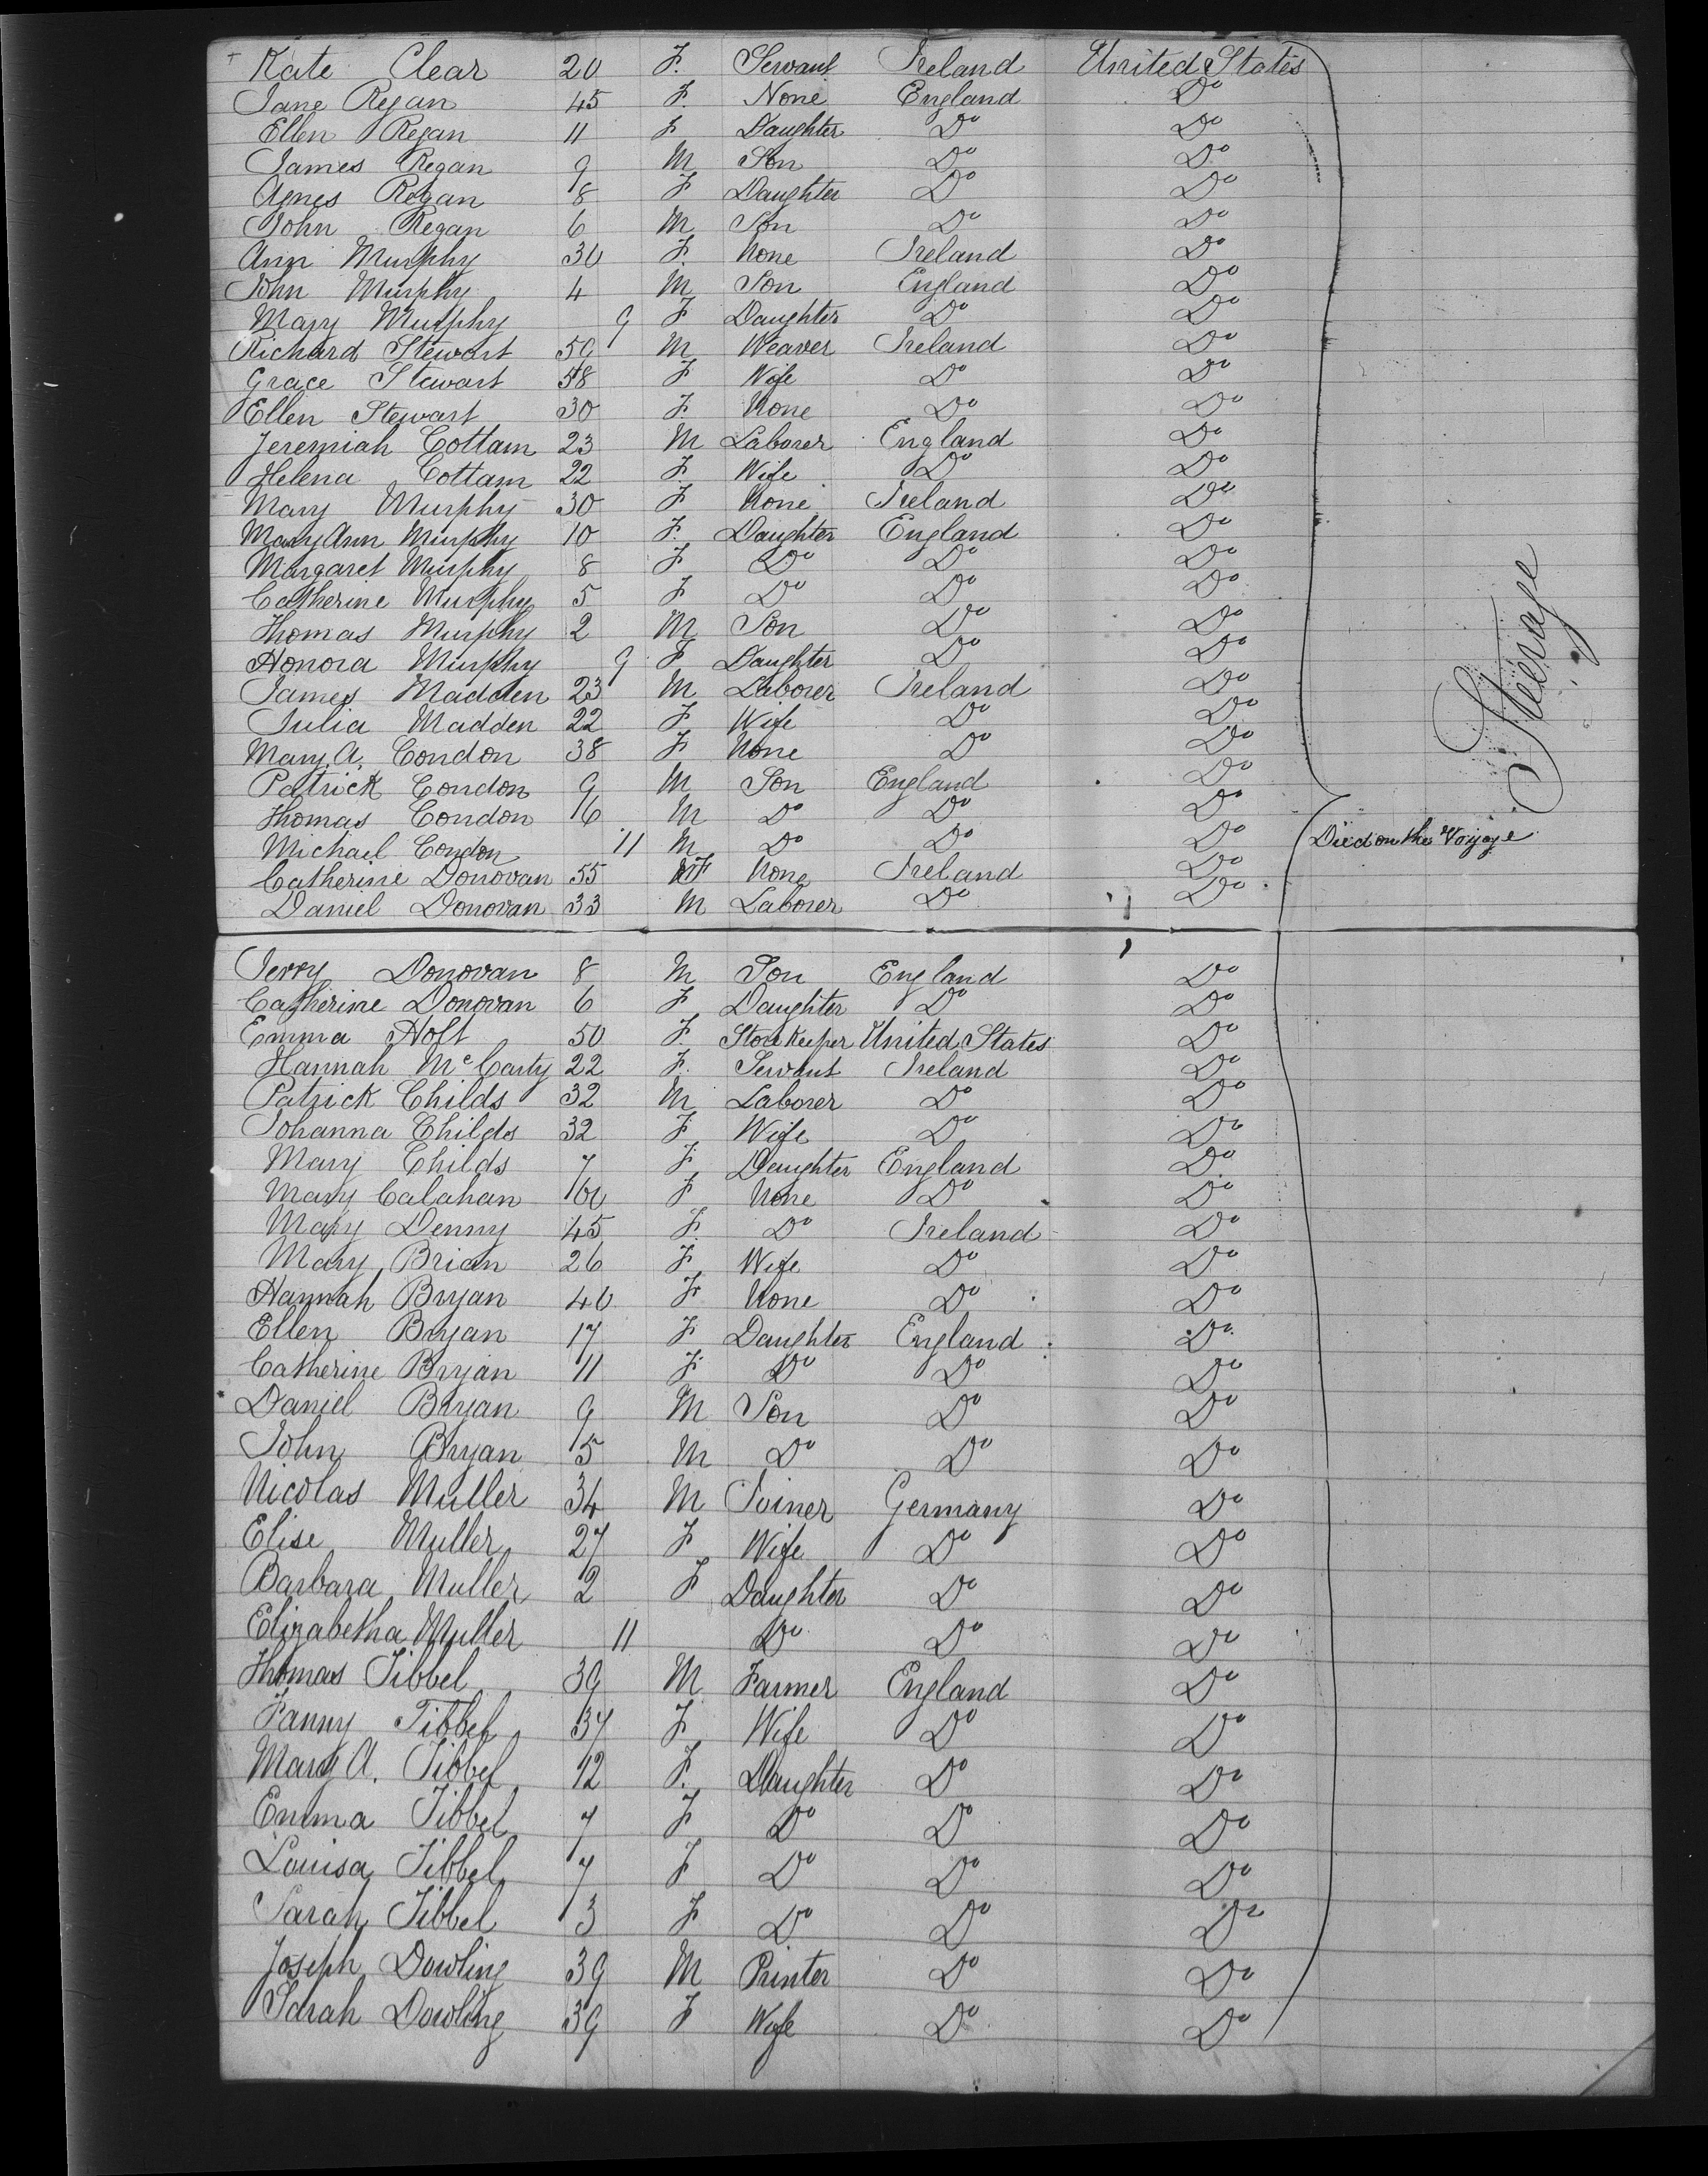 Kate Clear 20 F. Servant Ireland United States
Jane Regan 45 F. None England Do
Ellen Regan 11 F Daughter Do Do
James Regan 9 M Son Do Do
Agnes Regan 8 F Daughter Do Do
John Regan 6 M Son Do Do
Ann Murphy 30 F. None Ireland Do
John Murphy 4 M Son England Do
Mary Murphy 9 F Daughter Do Do
Richard Stewart 59 M Weaver Ireland Do
Grace Stewart 58 F Wife Do Do
Ellen Stewart 30 F. None Do Do
Jeremiah Cottam 23 M Laborer England Do
Helena Cottam 22 F. Wife Do Do
Mary Murphy 30 F None Ireland Do
Mary Ann Murphy 10 F. Daughter England Do
Margaret Murphy 8 F Do Do Do
Catherine Murphy 5 F Do Do Do
Thomas Murphy 2 M Son Do Do
Honora Murphy 9 F Daughter Do Do
James Madden 23 M Laborer Ireland Do
Julia Madden 22 F Wife Do Do
Mary. A. Condon 38 F None Do Do
Patrick Condon 9 M Son England Do
Thomas Condon 6 M Do Do Do
Michael Condon 11 M Do Do Do Died on the Voyage
Catherine Donovan 55 F None Ireland Do
Daniel Donovan 33 M Laborer Do Do
Steerage
Jerry Donovan 8 M Son England Do
Catherine Donovan 6 F Daughter Do Do
Emma Holt 50 F. Store Keeper United States Do
Hannah McCarty 22 F. Servant Ireland Do
Patrick Childs 32 M Laborer Do Do
Johanna Childs 32 F Wife Do Do
Mary Childs 7 F Daughter England Do
Mary Calahan 60 F None Do Do
Mary Denny 45 F. Do Ireland Do
Mary Brian 26 F Wife Do Do
Hannah Bryan 40 F None Do Do
Ellen Bryan 17 F Daughter England Do
Catherine Bryan 11 F Do Do Do
Daniel Bryan 9 M Son Do Do
John Bryan 5 M Do Do Do
Nicolas Muller 34 M Joiner Germany Do
Elise Muller 27 F Wife Do Do
Barbara Muller 2 F Daughter Do Do
Elizabetha Muller 11 Do Do Do
Thomas Tibbel 39 M Farmer England Do
Fanny Tibbel 37 F Wife Do Do
Mary A. Tibbel 12 F. Daughter Do Do
Emma Tibbel 7 F Do Do Do
Louisa Tibbel 7 F Do Do Do
Sarah Tibbel 3 F Do Do Do
Joseph Dowling 39 M Printer Do Do
Sarah Dowling 39 F Wife Do Do